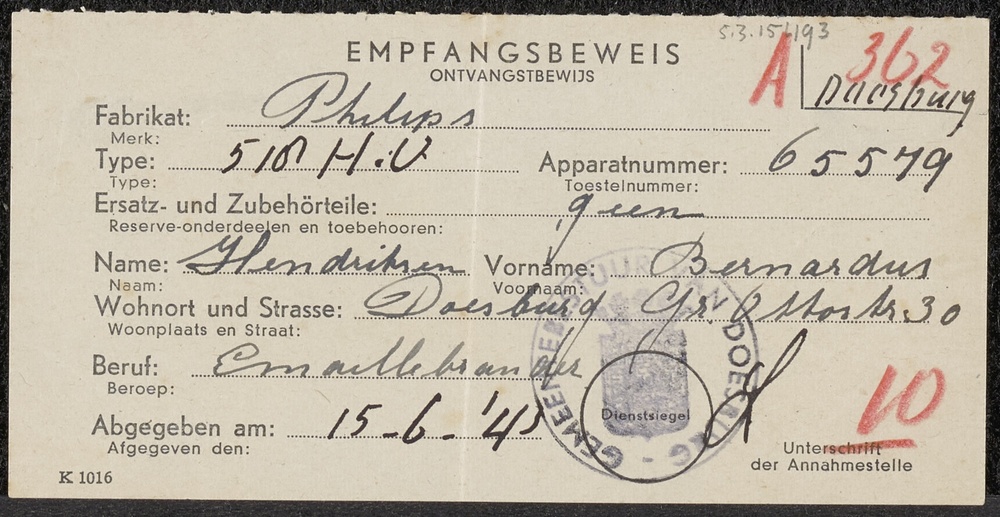 5.3.15/193
EMPFANGSBEWEIS
ONTVANGSTBEWIJS
A 362
Doesburg
Fabrikat: Philips
Merk:
Type: 518 H.U
Type:
Apparatnummer: 65579
Toestelnummer:
Ersatz- und Zubehörteile: geen
Reserve-onderdeelen en toebehooren:
Name: Hendriksen Vorname: Bernardus
Naam: Voornaam:
Wohnort und Strasse: Doesburg Gr. Ottostr. 30
Woonplaats en Straat:
Beruf: Emaillebrander
Beroep:
Abgegeben am: 15-6-'43
Afgegeven den:
GEMEENTEBESTUUR VAN DOESBURG
Dienstsiegel
10
Unterschrift
der Annahmestelle
K 1016